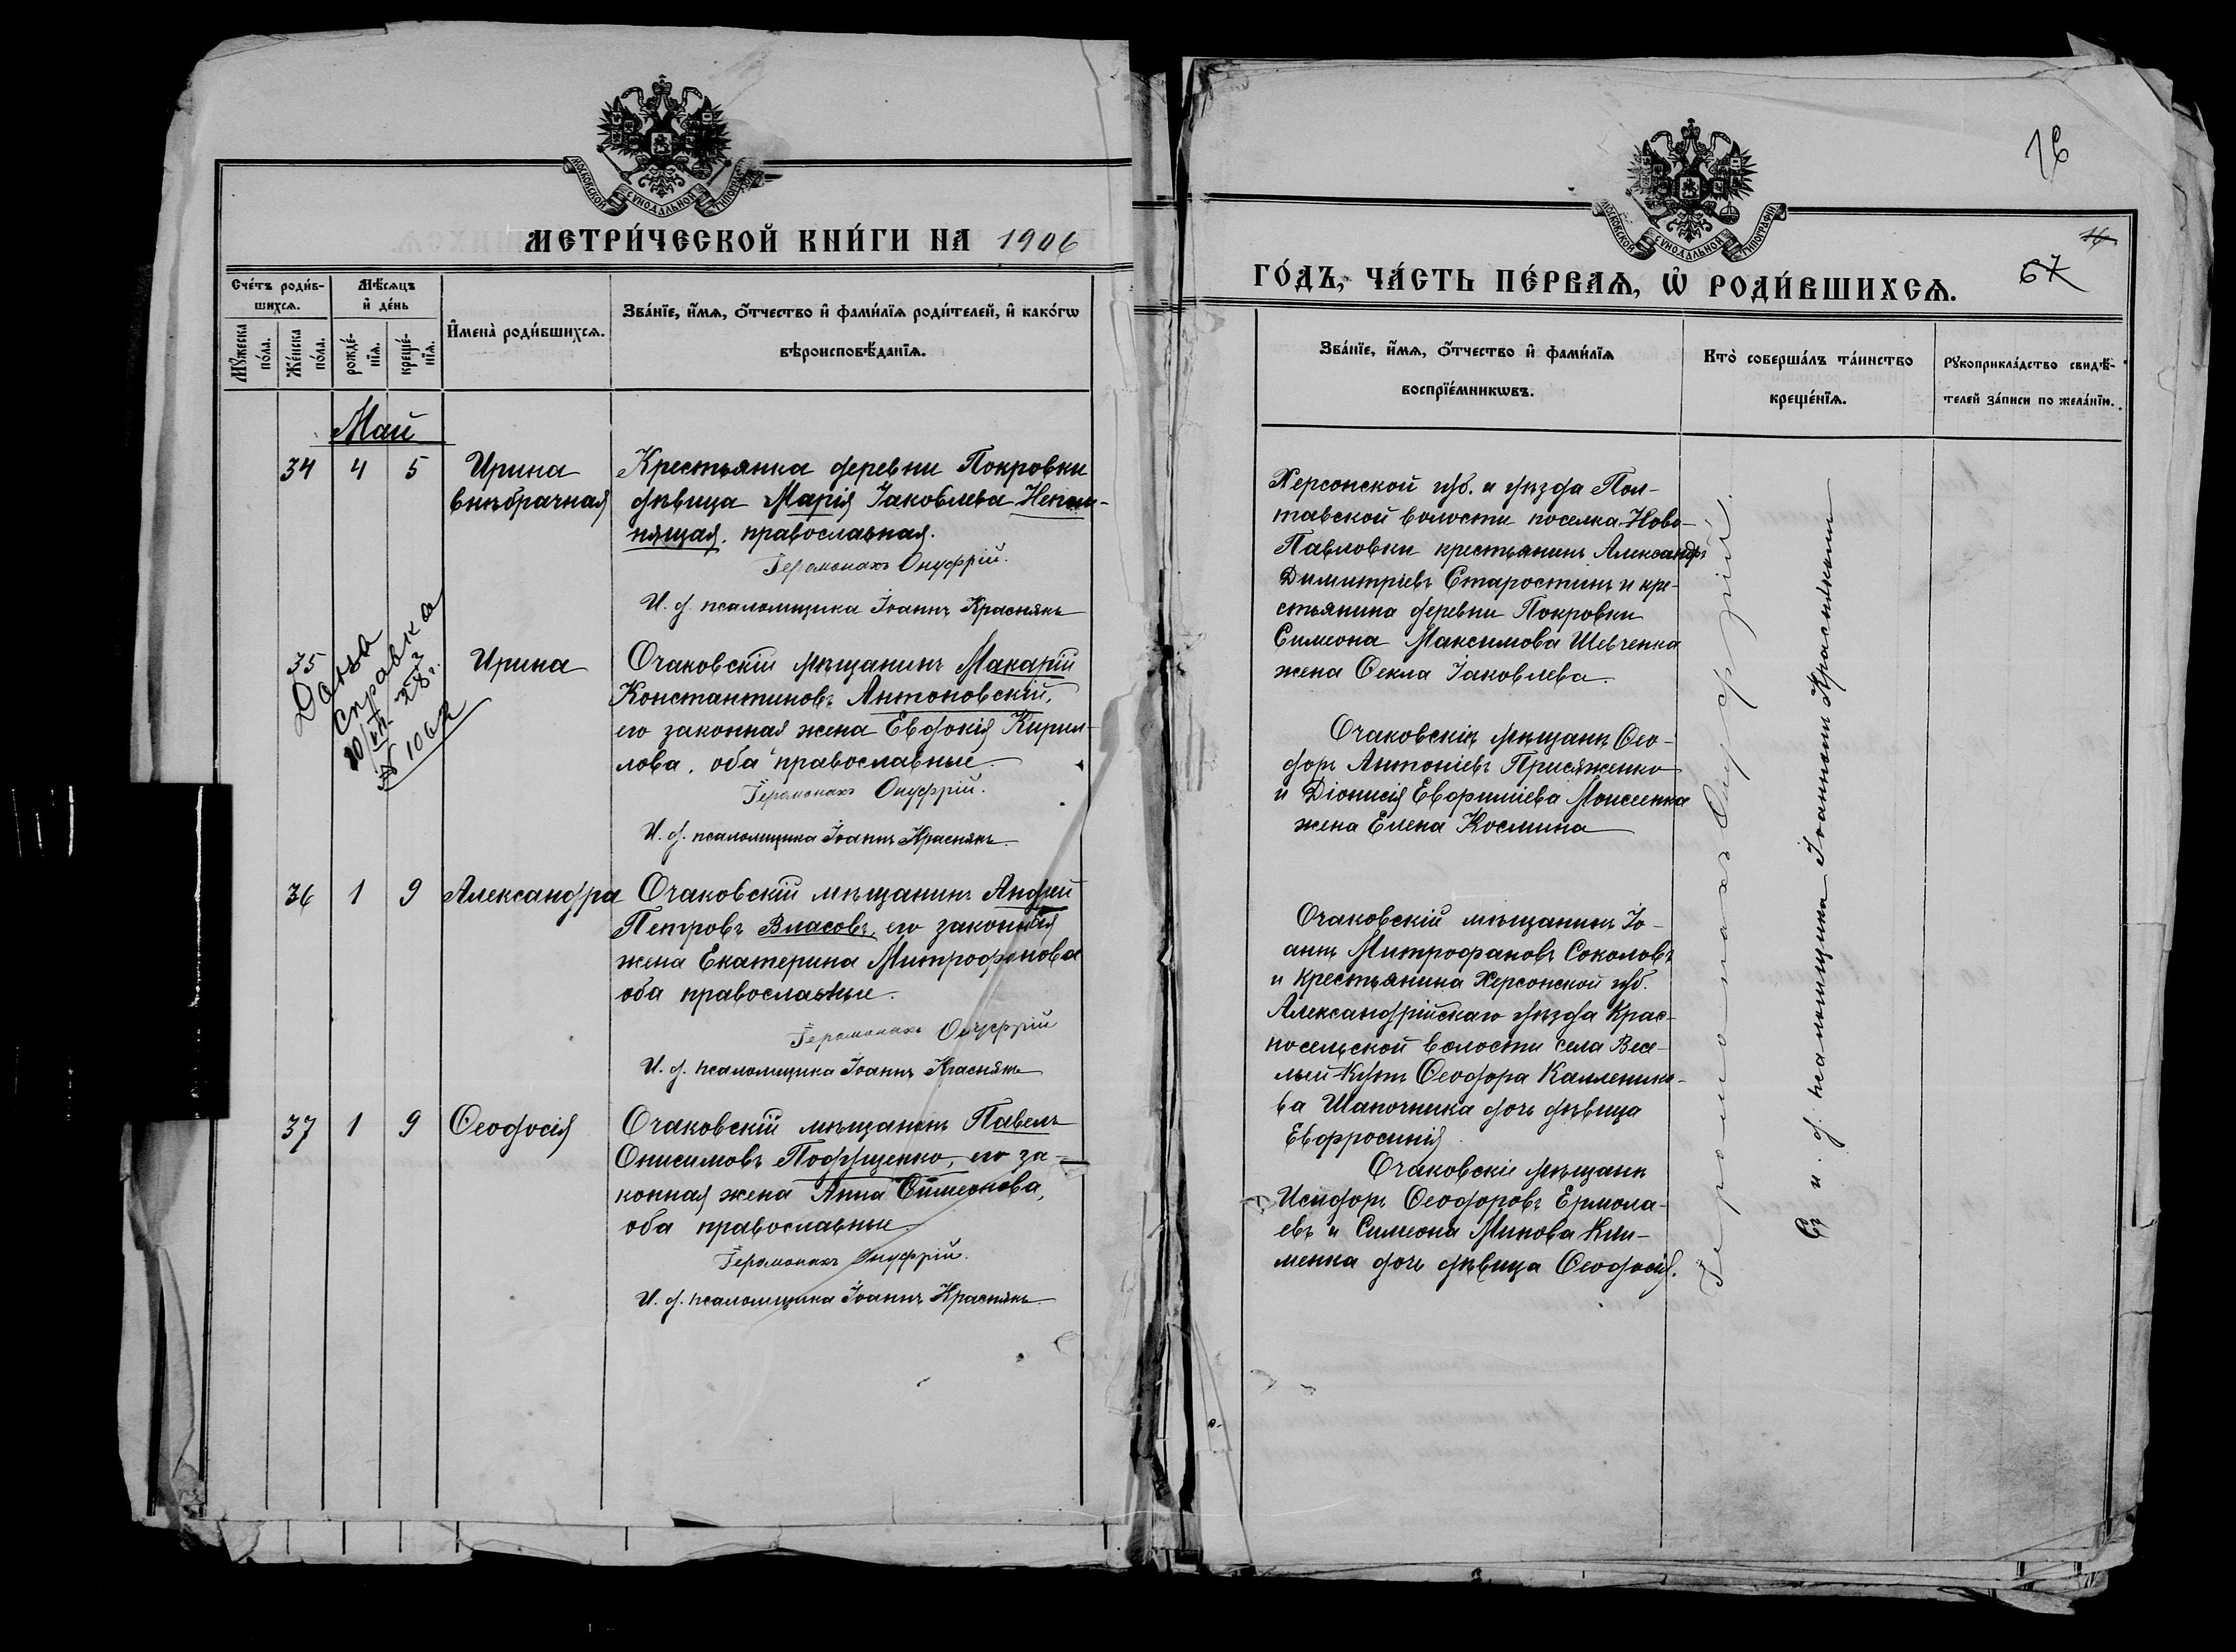 МОСКОВСКОЙ СѴНОДАЛЬНОЙ ТИПОГРАФІИ
МЕТРИ́ЧЕСКОЙ КНИ́ГИ НА 1906
Сче́тъ роди́в-
шихсѧ.
Мꙋ́жеска
по́ла.
Же́нска
по́ла.
Мѣ́сѧцъ
и҆ де́нь
рожде́-
нїѧ.
креще́-
нїѧ.
И҆мена̀ роди́вшихсѧ.
Зва́нїе, и҆́мѧ, ѻ҆́тчество и҆ фами́лїѧ роди́телей, и҆ како́гѡ
вѣроисповѣ́данїѧ.
Май
34 4 5 Ирина
внѣбрачная
Крестьянка деревни Покровки
дѣвица Марія Іаковлева Непом-
нящая, православная.
Іеромонахъ Онуфрій.
И. д. псаломщика Іоаннъ Краснякъ
35 Ирина
Дана
справка
№ 1062
Очаковскій мѣщанинъ Макарій
Константиновъ Антоновскій,
его законная жена Евдокія Кирил-
лова, оба православные
Іеромонахъ Онуфрій.
И. д. псаломщика Іоаннъ Краснякъ
36 1 9 Александра
Очаковскій мѣщанинъ Андрей
Петровъ Власовъ, его законная
жена Екатерина Митрофанова
оба православные.
Іеромонахъ Онуфрій
И. д. псаломщика Іоаннъ Краснякъ
37 1 9 Ѳеодосія
Очаковскій мѣщанинъ Павелъ
Онисимовъ Поддущенко, его за-
конная жена Анна Симеонова,
оба православные
Іеромонахъ Онуфрій.
И. д. псаломщика Іоаннъ Краснякъ
16
67
МОСКОВСКОЙ СѴНОДАЛЬНОЙ ТИПОГРАФІИ
ГО́ДЪ, ЧА́СТЬ ПЕ́РВАѦ, Ѡ҆ РОДИ́ВШИХСѦ.
Зва́нїе, и҆́мѧ, ѻ҆́тчество и҆ фами́лїѧ
воспрїе́мникѡвъ.
Кто̀ соверша́лъ та́инство
креще́нїѧ.
Рꙋкоприкла́дство свидѣ́-
телей за́писи по жела́нїю.
Херсонской губ. и уѣзда Пол-
тавской волости поселка Ново-
Павловки крестьянинъ Александръ
Димитріевъ Старостинъ и кре-
стьянина деревни Покровки
Симеона Максимова Шевченка
жена Ѳекла Іаковлева.
Очаковскіе мѣщане Ѳео-
доръ Антоніевъ Присяженко
и Діонисія Евфиміева Моисеенка
жена Елена Космина
Очаковскій мѣщанинъ Іо-
аннъ Митрофановъ Соколовъ
и крестьянина Херсонской губ.
Александрійскаго уѣзда Крас-
носельской волости села Весе-
лый Кутъ Ѳеодора Каллинико-
ва Шапочника дочь дѣвица
Евфросинія.
Очаковскіе мѣщане
Исидоръ Ѳеодоровъ Ермола-
евъ и Симеона Минова Кли-
менка дочь дѣвица Ѳеодосія.
Іеромонахъ Онуфрій.
Съ и. д. псаломщика Іоанномъ Краснякомъ